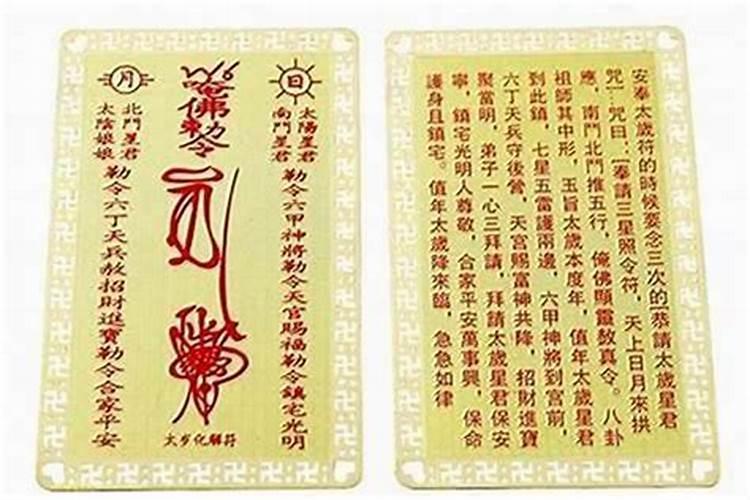 日
太陽星君
南鬥星君
勒令六甲神將勒令天官賜福勒令鎮宅光明
唵佛勅令
太岁化解符
月
北鬥星君
太陰娘娘
勒令六丁天兵敕招財進寶勒令合家平安
安奉太歲符的時候要念三次的[恭請太歲星君
咒]:咒曰:[奉請三星照令符,天上日月來拱
應,南鬥北鬥推五行,俺佛顯靈敖真令。八卦
祖師其中形,玉旨太歲本度年,值年太歲星君
到此鎮,七星五雷護兩邊,六甲神將到宮前,
六丁天兵守後營,天宮賜富神共降,招財進寶
聚當明,弟子一心三拜請,拜請太歲星君保安
寧,鎮宅光明人尊敬,合家平安萬事興,保命
護身且鎮宅。值年太歲降來臨,急急如律